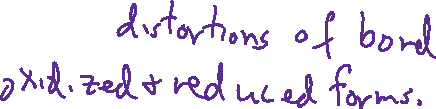 distortions of bond
oxidized & reduced forms.